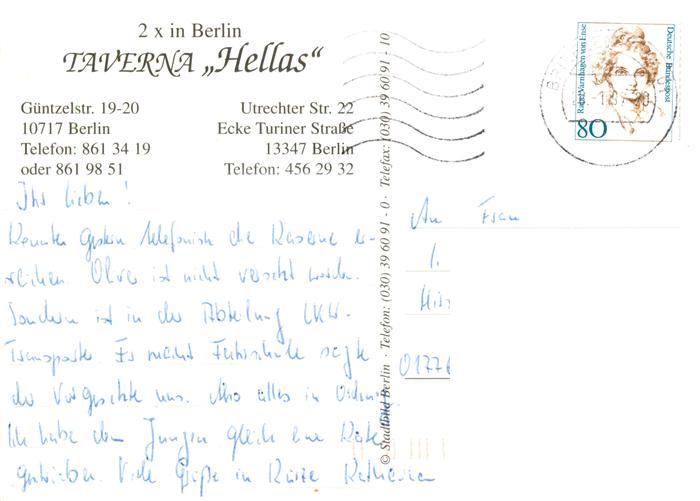 2 x in Berlin
TAVERNA „Hellas“
Güntzelstr. 19-20
10717 Berlin
Telefon: 861 34 19
oder 861 98 51
Utrechter Str. 22
Ecke Turiner Straße
13347 Berlin
Telefon: 456 29 32
Ihr lieben!
Konnten gestern telefonisch die Kaserne er-
reichen. Oliver ist nicht versetzt worden.
Sondern ist in der Abteilung LKW-
Transporte. Er macht Fahrschule sagte
der Vorgesetzte uns. Also alles in Ordnung.
Ich habe dem Jungen gleich eine Karte
geschrieben. Viele Grüße in Kürze
© Stadtbild Berlin · Telefon: (030) 39 60 91 - 0 · Telefax: (030) 39 60 91 - 10
Deutsche Bundespost
Rahel Varnhagen von Ense
80
An Frau
01776